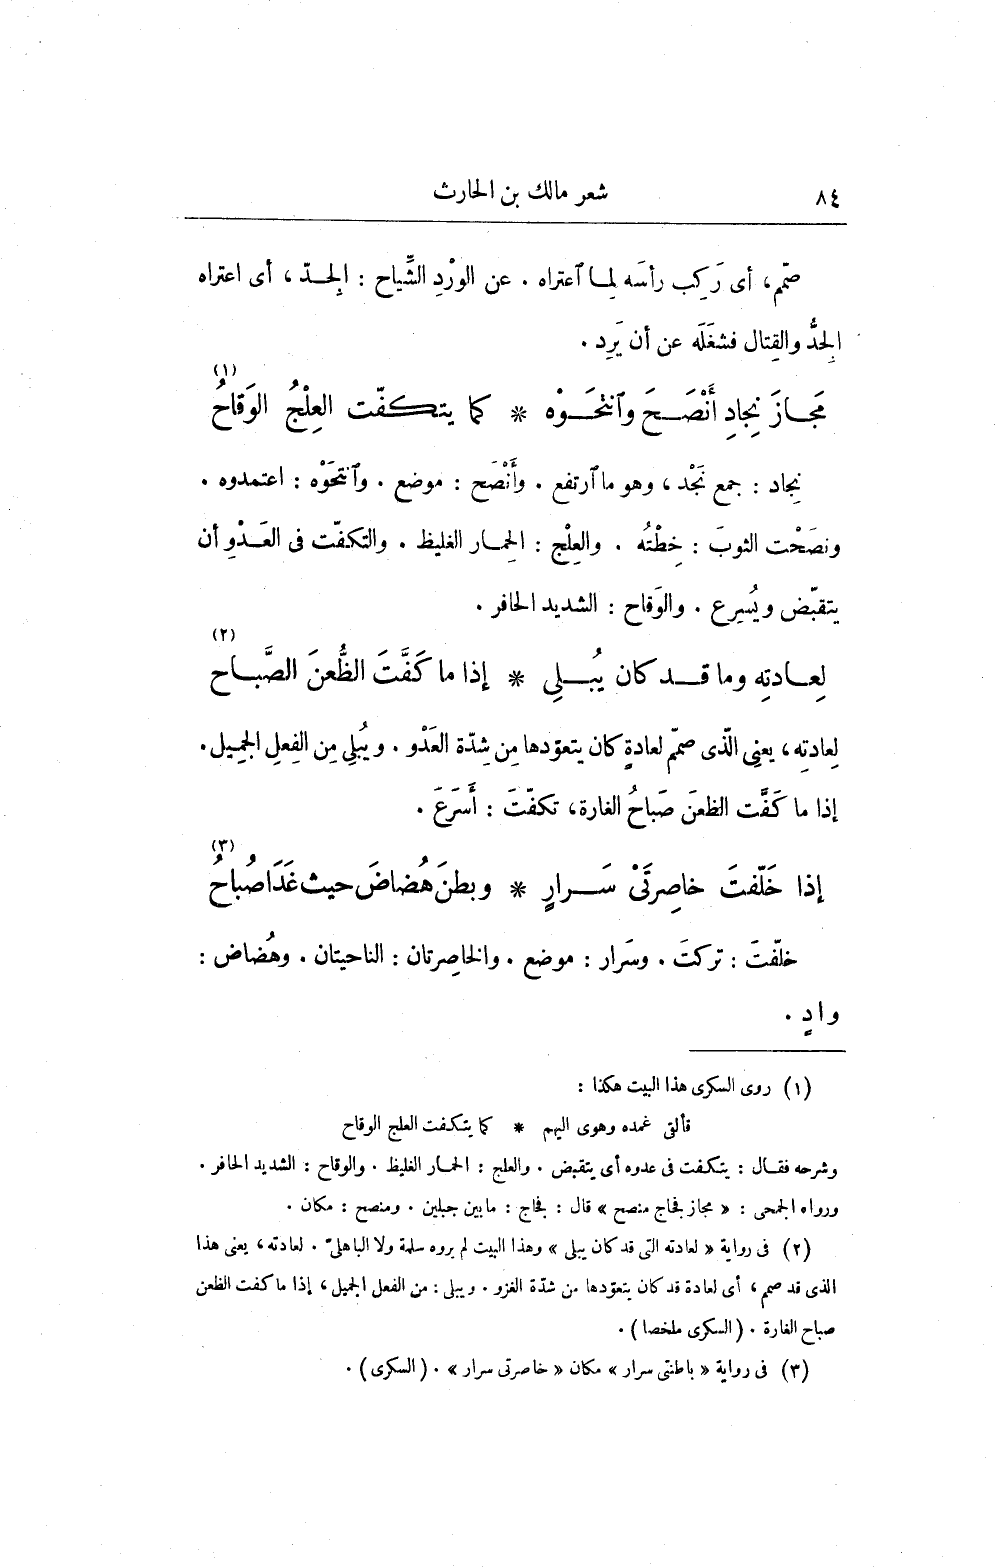 ٨٤ شعر مالك بن الحارث
صمّم، أى رَكِب رأسَه لِمـا ٱعتراه . عن الوِرْدِ الشِّياح : الجِـدّ ، أى اعتراه
الجِدُّ والقِتال فشغَلَه عن أن يَرِد .
مَجـازَ نِجادِ أَنْصَـحَ وٱنتحَـوْه * كما يتكفّت العِلْجُ الوَقاحُ (١)
نِجاد : جمع نَجْد ، وهو ما ٱرتفع . وأَنْصَح : موضع . وٱنتحَوْه : اعتمدوه .
ونصَحْت الثوبَ : خِطْتُه . والعِلْج : الحِمـار الغليظ . والتكفّت فى العَـدْوِ أن
يتقبّض ويُسرِع . والوَقاح : الشديد الحافر .
لِعـادتِه وما قـد كان يُبـلِي * إذا ما كَفَّتَ الظُّعنَ الصَّبـاح (٢)
لِعادتِه ، يعنِى الّذى صمّم لعادةٍ كان يتعوّدها مِن شِدّة العَدْو . ويُبلِى مِن الفِعلِ الجميل .
إذا ما كَفَّت الظعنَ صَباحُ الغارة، تكفّتَ : أَسرَعَ .
إذا خَلّفتَ خاصِرتَىْ سَـرارٍ * وبطنَ هُضاضَ حيث غَدَا صُباحُ (٣)
خلّفتَ : تركتَ . وسَرار : موضع . والخاصِرتان : الناحيتان . وهُضاض :
وادٍ .
(١) روى السكرى هذا البيت هكذا :
فألقى غمده وهوى اليهم * كما يتكفت العلج الوقاح
وشرحه فقـال : يتكفت فى عدوه أى يتقبض . والعلج : الحمـار الغليظ . والوقاح : الشديد الحافر .
ورواه الجمحى : « مجاز فجاج منصح » قال : فجاج : ما بين جبلين . ومنصح : مكان .
(٢) فى رواية « لعادته التى قد كان يبلى » وهذا البيت لم يروه سلمة ولا الباهلىّ . لعادته ، يعنى هذا
الذى قد صمم ، أى لعادة قد كان يتعوّدها من شدّة الغزو . ويبلى : من الفعل الجميل ، إذا ما كفت الظعن
صباح الغارة . (السكرى ملخصا) .
(٣) فى رواية « باطنتى سرار » مكان « خاصرتى سرار » . (السكرى) .